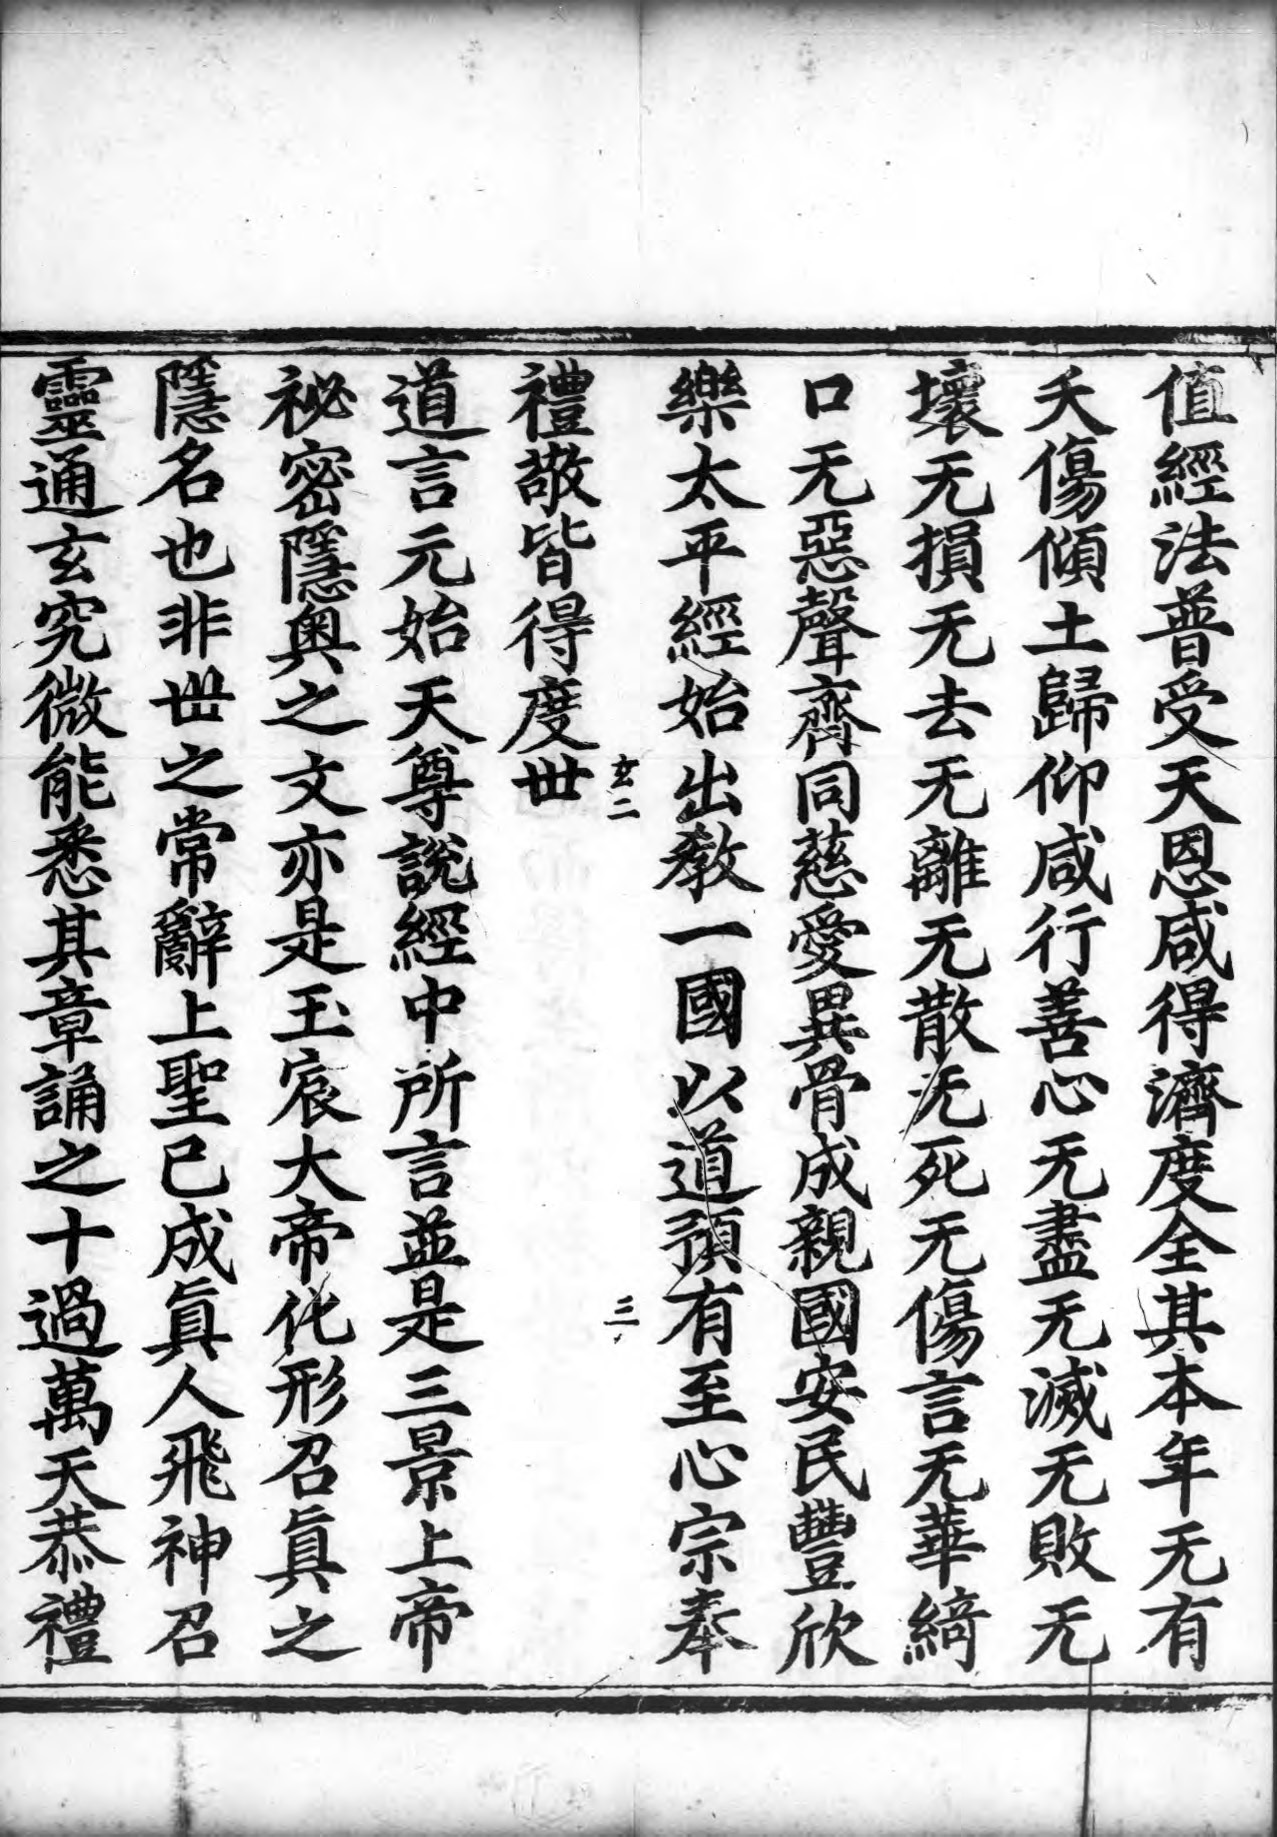 值經法普受天恩咸得濟度全其本年无有
夭傷傾土歸仰咸行善心无盡无滅无敗无
壞无損无去无離无散无死无傷言无華綺
口无惡聲齊同慈愛異骨成親國安民豐欣
樂太平經始出教一國以道預有至心宗奉
玄二
三
禮敬皆得度世
道言元始天尊說經中所言並是三景上帝
祕密隱奥之文亦是玉宸大帝化形召眞之
隱名也非世之常辭上聖已成眞人飛神召
靈通玄究微能悉其章誦之十過萬天恭禮